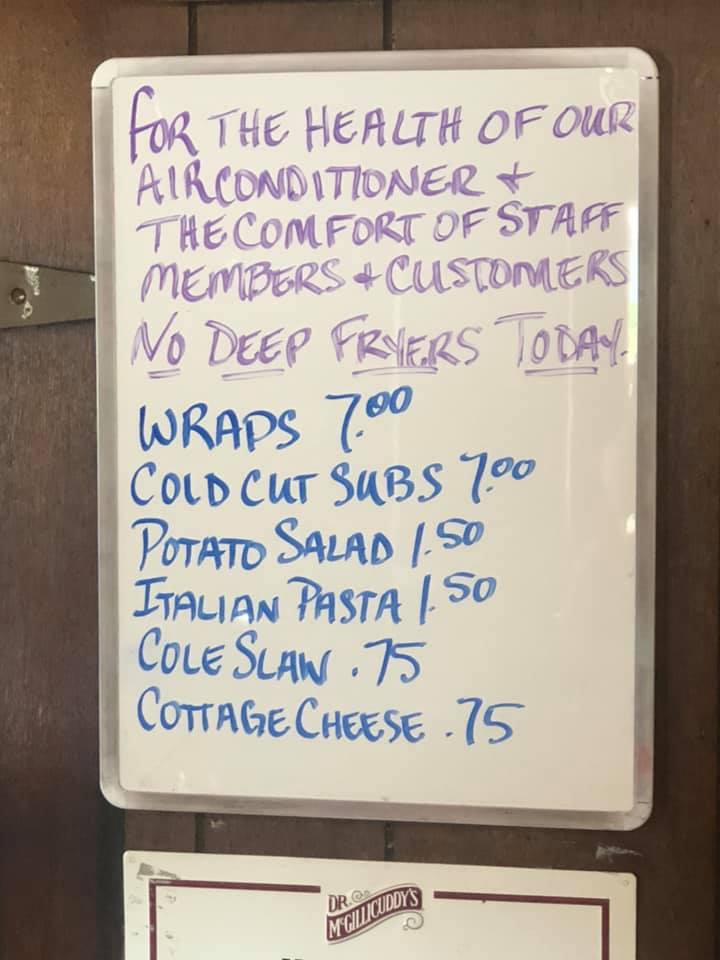 FOR THE HEALTH OF OUR
AIRCONDITIONER +
THE COMFORT OF STAFF
MEMBERS + CUSTOMERS
NO DEEP FRYERS TODAY.
WRAPS 7.00
COLD CUT SUBS 7.00
POTATO SALAD 1.50
ITALIAN PASTA 1.50
COLE SLAW .75
COTTAGE CHEESE .75
DR.
McGILLICUDDY'S